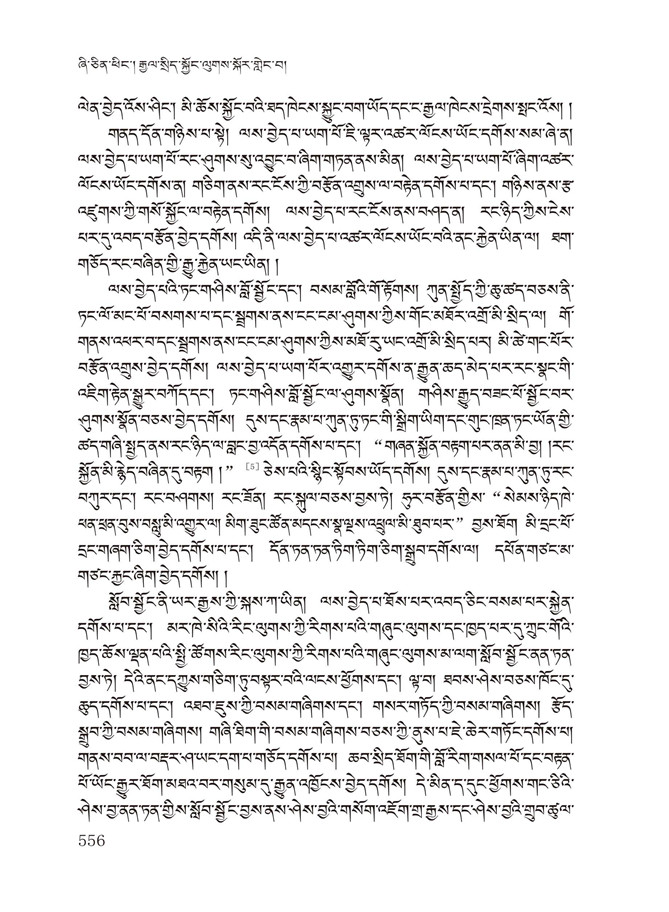 ཞི་ཅིན་ཕིང་། རྒྱལ་སྲིད་སྐྱོང་ལུགས་སྐོར་གླེང་བ།
ལེན་བྱེད་འོས་ཤིང་། མི་ཆོས་སྐྱོང་བའི་ཐད་ཁེངས་སྐྱུང་བག་ཡོད་དང་ང་རྒྱལ་ཁེངས་དྲེགས་སྤང་འོས། །
གནད་དོན་གཉིས་པ་སྟེ། ལས་བྱེད་པ་ཡག་པོ་ཇི་ལྟར་འཚར་ལོངས་ཡོང་དགོས་སམ་ཞེ་ན།
ལས་བྱེད་པ་ཡག་པོ་རང་ཤུགས་སུ་འབྱུང་བ་ཞིག་གཏན་ནས་མིན། ལས་བྱེད་པ་ཡག་པོ་ཞིག་འཚར་
ལོངས་ཡོང་དགོས་ན། གཅིག་ནས་རང་ངོས་ཀྱི་བརྩོན་འགྲུས་ལ་བརྟེན་དགོས་པ་དང་། གཉིས་ནས་རྩ་
འཛུགས་ཀྱི་གསོ་སྐྱོང་ལ་བརྟེན་དགོས། ལས་བྱེད་པ་རང་ངོས་ནས་བཤད་ན། རང་ཉིད་ཀྱིས་ངེས་
པར་དུ་འབད་བརྩོན་བྱེད་དགོས། འདི་ནི་ལས་བྱེད་པ་འཚར་ལོངས་ཡོང་བའི་ནང་རྐྱེན་ཡིན་ལ། ཐག་
གཅོད་རང་བཞིན་གྱི་རྒྱུ་རྐྱེན་ཡང་ཡིན། །
ལས་བྱེད་པའི་ཏང་གཤིས་བློ་སྦྱོང་དང་། བསམ་བློའི་གོ་རྟོགས། ཀུན་སྤྱོད་ཀྱི་ཆུ་ཚད་བཅས་ནི་
ཏང་ལོ་མང་པོ་བསགས་པ་དང་སྦྲགས་ནས་ངང་ངམ་ཤུགས་ཀྱིས་གོང་མཐོར་འགྲོ་མི་སྲིད་ལ། གོ་
གནས་འཕར་བ་དང་སྦྲགས་ནས་ངང་ངམ་ཤུགས་ཀྱིས་མཐོ་རུ་ཡང་འགྲོ་མི་སྲིད་པས། མི་ཚེ་གང་པོར་
བརྩོན་འགྲུས་བྱེད་དགོས། ལས་བྱེད་པ་ཡག་པོར་འགྱུར་དགོས་ན་རྒྱུན་ཆད་མེད་པར་རང་སྣང་གི་
འཇིག་རྟེན་སྒྱུར་བཀོད་དང་། ཏང་གཤིས་བློ་སྦྱོང་ལ་ཤུགས་སྣོན། གཤིས་རྒྱུད་བཟང་པོ་སྦྱོང་བར་
ཤུགས་སྣོན་བཅས་བྱེད་དགོས། དུས་དང་རྣམ་པ་ཀུན་ཏུ་ཏང་གི་སྒྲིག་ཡིག་དང་གུང་ཁྲན་ཏང་ཡོན་གྱི་
ཚད་གཞི་སྤྱད་ནས་རང་ཉིད་ལ་བླང་བྱ་འདོན་དགོས་པ་དང་། “གཞན་སྐྱོན་བརྟག་པར་ནན་མི་བྱ། །རང་
སྐྱོན་མི་རྙེད་བཞིན་དུ་བརྟག །” [5] ཅེས་པའི་སྙིང་སྟོབས་ཡོད་དགོས། དུས་དང་རྣམ་པ་ཀུན་ཏུ་རང་
བཀུར་དང་། རང་བཤགས། རང་ཟོན། རང་སྐུལ་བཅས་བྱས་ཏེ། ཧུར་བརྩོན་གྱིས་ “སེམས་ཉིད་ཁེ་
ཕན་ཕྲན་བུས་བསླུ་མི་འགྱུར་ལ། མིག་ཟུང་ཚོན་མདངས་སྣ་ལྔས་འཕྲུལ་མི་ཐུབ་པར་” བྱས་ཐོག མི་དྲང་པོ་
དྲང་གཞག་ཅིག་བྱེད་དགོས་པ་དང་། དོན་ཏན་ཏན་ཏིག་ཏིག་ཅིག་སྒྲུབ་དགོས་ལ། དཔོན་གཙང་མ་
གཙང་རྐྱང་ཞིག་བྱེད་དགོས། །
སློབ་སྦྱོང་ནི་ཡར་རྒྱས་ཀྱི་སྐས་ཀ་ཡིན། ལས་བྱེད་པ་ཐོས་པར་འབད་ཅིང་བསམ་པར་སྐྱེན་
དགོས་པ་དང་། མར་ཁེ་སིའི་རིང་ལུགས་ཀྱི་རིགས་པའི་གཞུང་ལུགས་དང་ཁྱད་པར་དུ་ཀྲུང་གོའི་
ཁྱད་ཆོས་ལྡན་པའི་སྤྱི་ཚོགས་རིང་ལུགས་ཀྱི་རིགས་པའི་གཞུང་ལུགས་མ་ལག་སློབ་སྦྱོང་ནན་ཏན་
བྱས་ཏེ། དེའི་ནང་དཀྱུས་གཅིག་ཏུ་བསྟར་བའི་ལངས་ཕྱོགས་དང་། ལྟ་བ། ཐབས་ཤེས་བཅས་ཁོང་དུ་
ཆུད་དགོས་པ་དང་། འཐབ་ཇུས་ཀྱི་བསམ་གཞིགས་དང་། གསར་གཏོད་ཀྱི་བསམ་གཞིགས། རྩོད་
སྒྲུབ་ཀྱི་བསམ་གཞིགས། གཞི་ཐིག་གི་བསམ་གཞིགས་བཅས་ཀྱི་ནུས་པ་ཇེ་ཆེར་གཏོང་དགོས་པ།
གནས་བབ་ལ་བརྡར་ཤ་ཡང་དག་པ་གཅོད་དགོས་པ། ཆབ་སྲིད་ཐོག་གི་བློ་རིག་གསལ་པོ་དང་བརྟན་
པོ་ཡོང་རྒྱུར་ཐོག་མཐའ་བར་གསུམ་དུ་རྒྱུན་འཁྱོངས་བྱེད་དགོས། དེ་མིན་ད་དུང་ཕྱོགས་གང་ཅིའི་
ཤེས་བྱ་ནན་ཏན་གྱིས་སློབ་སྦྱོང་བྱས་ནས་ཤེས་བྱའི་གསོག་འཇོག་གྲ་རྒྱས་དང་ཤེས་བྱའི་གྲུབ་ཚུལ་
556